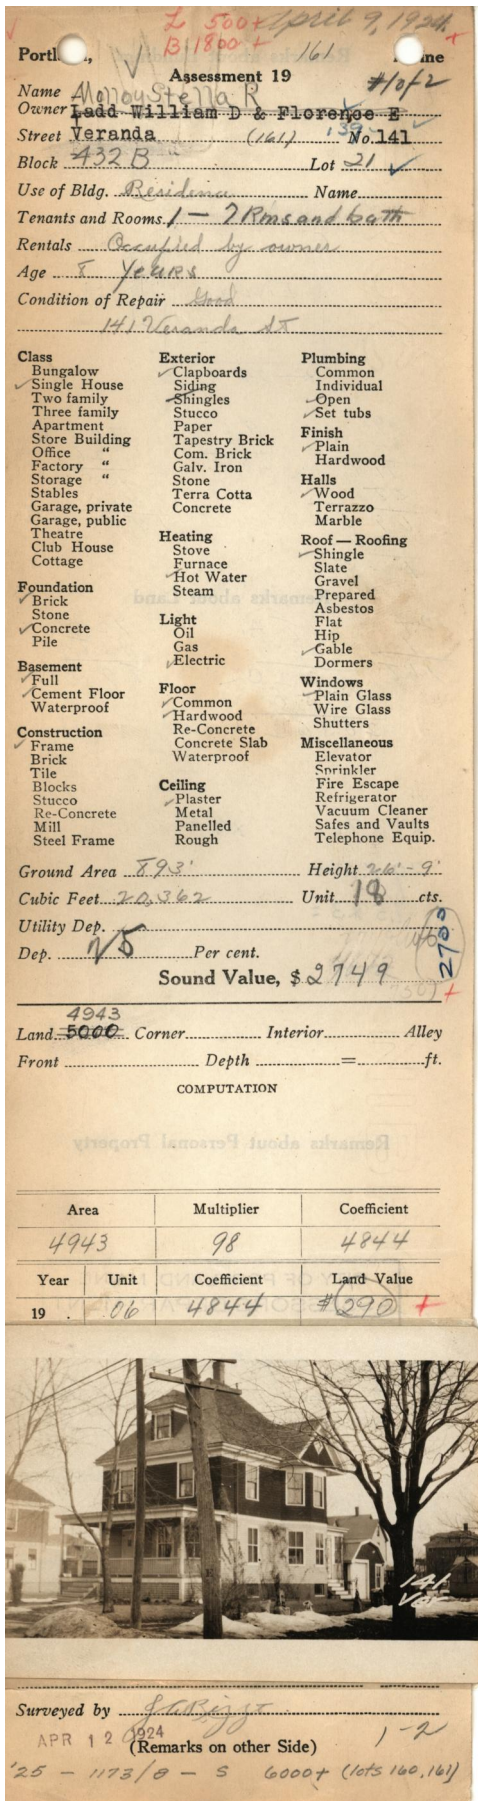 L 500+ April 9, 1924
B 1800 + 161
Portl , ine
Assessment 19 #1 of 2
Name Molloy Stella R
Owner Ladd William D & Florence E
Street Veranda (161) 139 No. 141
Block 432 B Lot 21
Use of Bldg. Residence Name
Tenants and Rooms 1 — 7 Rms and bath
Rentals Occupied by owner
Age 8 Years
Condition of Repair Good
141 Veranda St
Class
Bungalow
Single House
Two family
Three family
Apartment
Store Building
Office "
Factory "
Storage "
Stables
Garage, private
Garage, public
Theatre
Club House
Cottage
Foundation
Brick
Stone
Concrete
Pile
Basement
Full
Cement Floor
Waterproof
Construction
Frame
Brick
Tile
Blocks
Stucco
Re-Concrete
Mill
Steel Frame
Exterior
Clapboards
Siding
Shingles
Stucco
Paper
Tapestry Brick
Com. Brick
Galv. Iron
Stone
Terra Cotta
Concrete
Heating
Stove
Furnace
Hot Water
Steam
Light
Oil
Gas
Electric
Floor
Common
Hardwood
Re-Concrete
Concrete Slab
Waterproof
Ceiling
Plaster
Metal
Panelled
Rough
Plumbing
Common
Individual
Open
Set tubs
Finish
Plain
Hardwood
Halls
Wood
Terrazzo
Marble
Roof — Roofing
Shingle
Slate
Gravel
Prepared
Asbestos
Flat
Hip
Gable
Dormers
Windows
Plain Glass
Wire Glass
Shutters
Miscellaneous
Elevator
Sprinkler
Fire Escape
Refrigerator
Vacuum Cleaner
Safes and Vaults
Telephone Equip.
Ground Area 893' Height 26'-9'
Cubic Feet 20,362 Unit 18 cts.
Utility Dep.
Dep. 25 Per cent.
2700
Sound Value, $ 2749
4943
Land 5000 Corner Interior Alley
Front Depth = ft.
COMPUTATION
Remarks about Personal Property
Area Multiplier Coefficient
4943 98 4844
Year Unit Coefficient Land Value
19 . 06 4844 $290 +
141
Ver
Surveyed by
APR 12 1924
(Remarks on other Side) 1-2
'25 - 1173/8 - S 6000+ (lots 160,161)